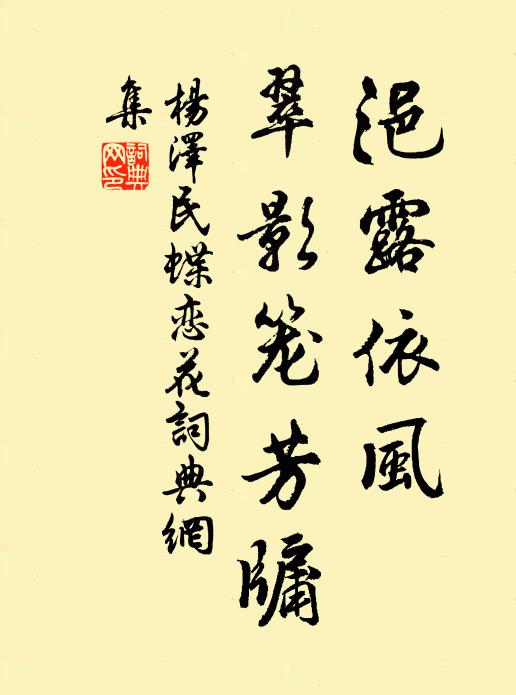 浥露依風
翠影笼芳牖
楊澤民蝶恋花詞典網
集
詞典
网印